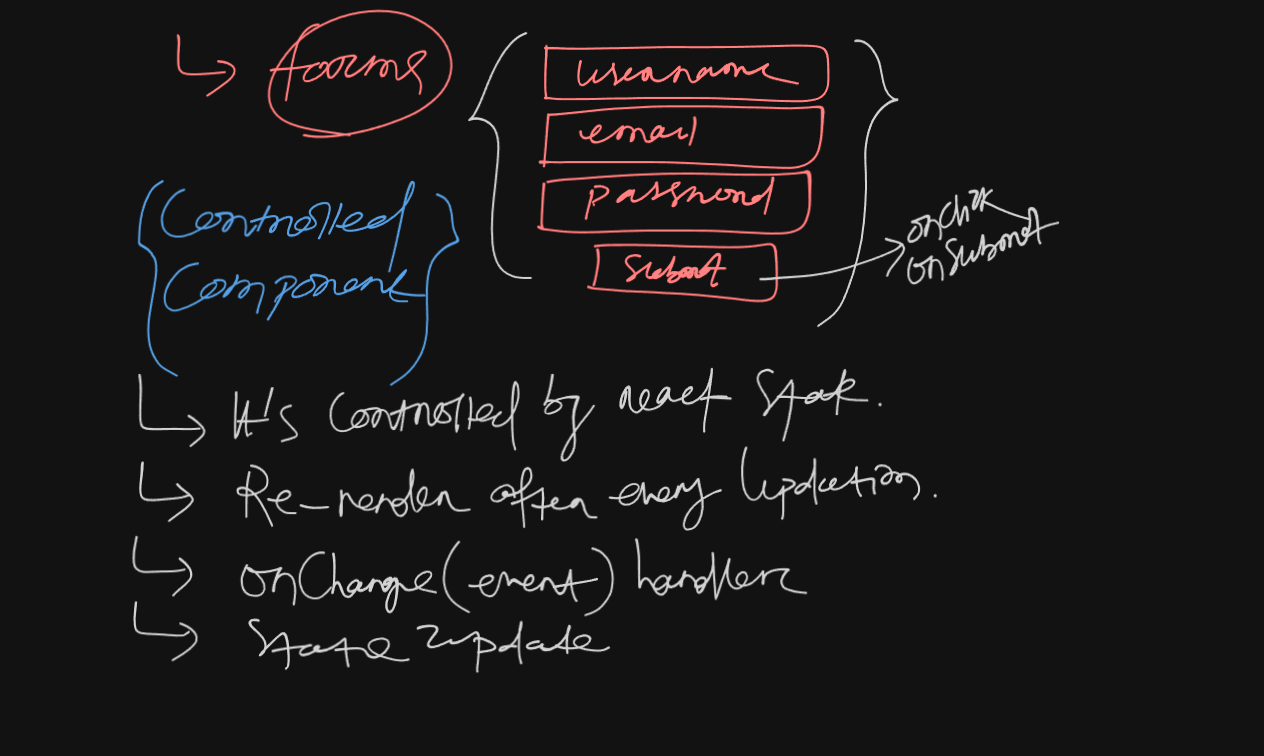 forms
username
email
password
submit
onClick
onSubmit
Controlled
Component
It's Controlled by react State.
Re-render after every Updation.
onChange(event) handler
State update